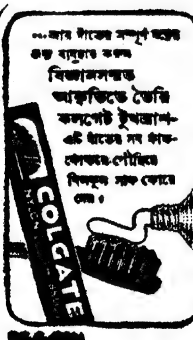 ...আর দাঁতের সম্পূর্ণ যত্নের
জন্য ব্যবহার করুন
বিজ্ঞানসম্মত
আকৃতিতে তৈরি
কলগেট টুথব্রাশ-
এটি দাঁতের সব ফাঁক-
ফোকরে পৌঁছিয়ে
নিখুঁত সাফ কোরে
দেয়।
COLGATE